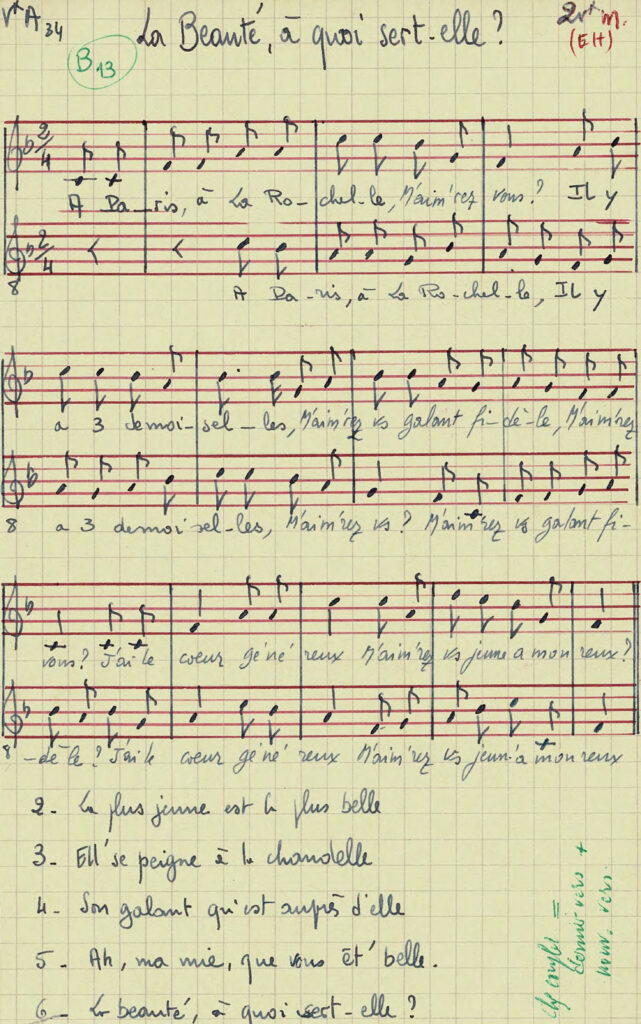 Vx A 34
La Beauté, à quoi sert-elle?
2 vx m.
(EH)
B 13
2/4
A Pa-ris, à La Ro-chel-le, M'aim'rez vous? Il y
2/4
8
A Pa-ris, à La Ro-chel-le, Il y
a 3 demoi-sel-les, M'aim'rez vs galant fi-dè-le, M'aim'rez
8 a 3 demoisel-les, M'aim'rez vs? M'aim'rez vs galant fi-
vous? J'ai le coeur gé né reux M'aim'rez vs jeune a mou reux?
8 -dè-le? J'ai le coeur gé né reux M'aim'rez vs jeun'a mou reux
2- La plus jeune est la plus belle
3- Ell' se peigne à la chandelle
4- Son galant qu'est auprès d'elle
5- Ah, ma mie, que vous êt' belle.
6- La beauté, à quoi sert-elle?
chq couplet =
dernier vers +
nouv. vers.